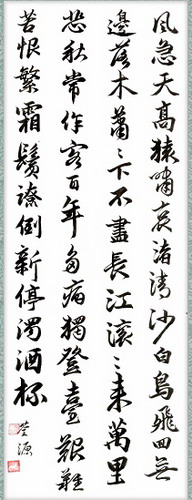 風急天高猿嘯哀渚清沙白鳥飛回無
邊落木蕭〻下不盡長江滾〻來萬里
悲秋常作客百年多病獨登臺艱難
苦恨繁霜鬢潦倒新停濁酒杯